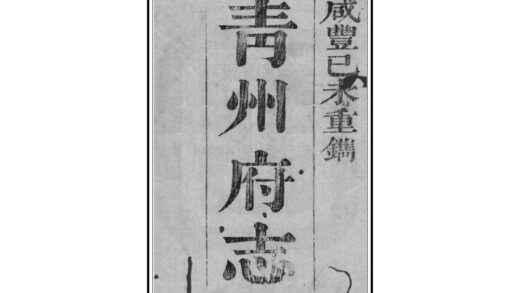 咸豐己未重鐫
青州府志